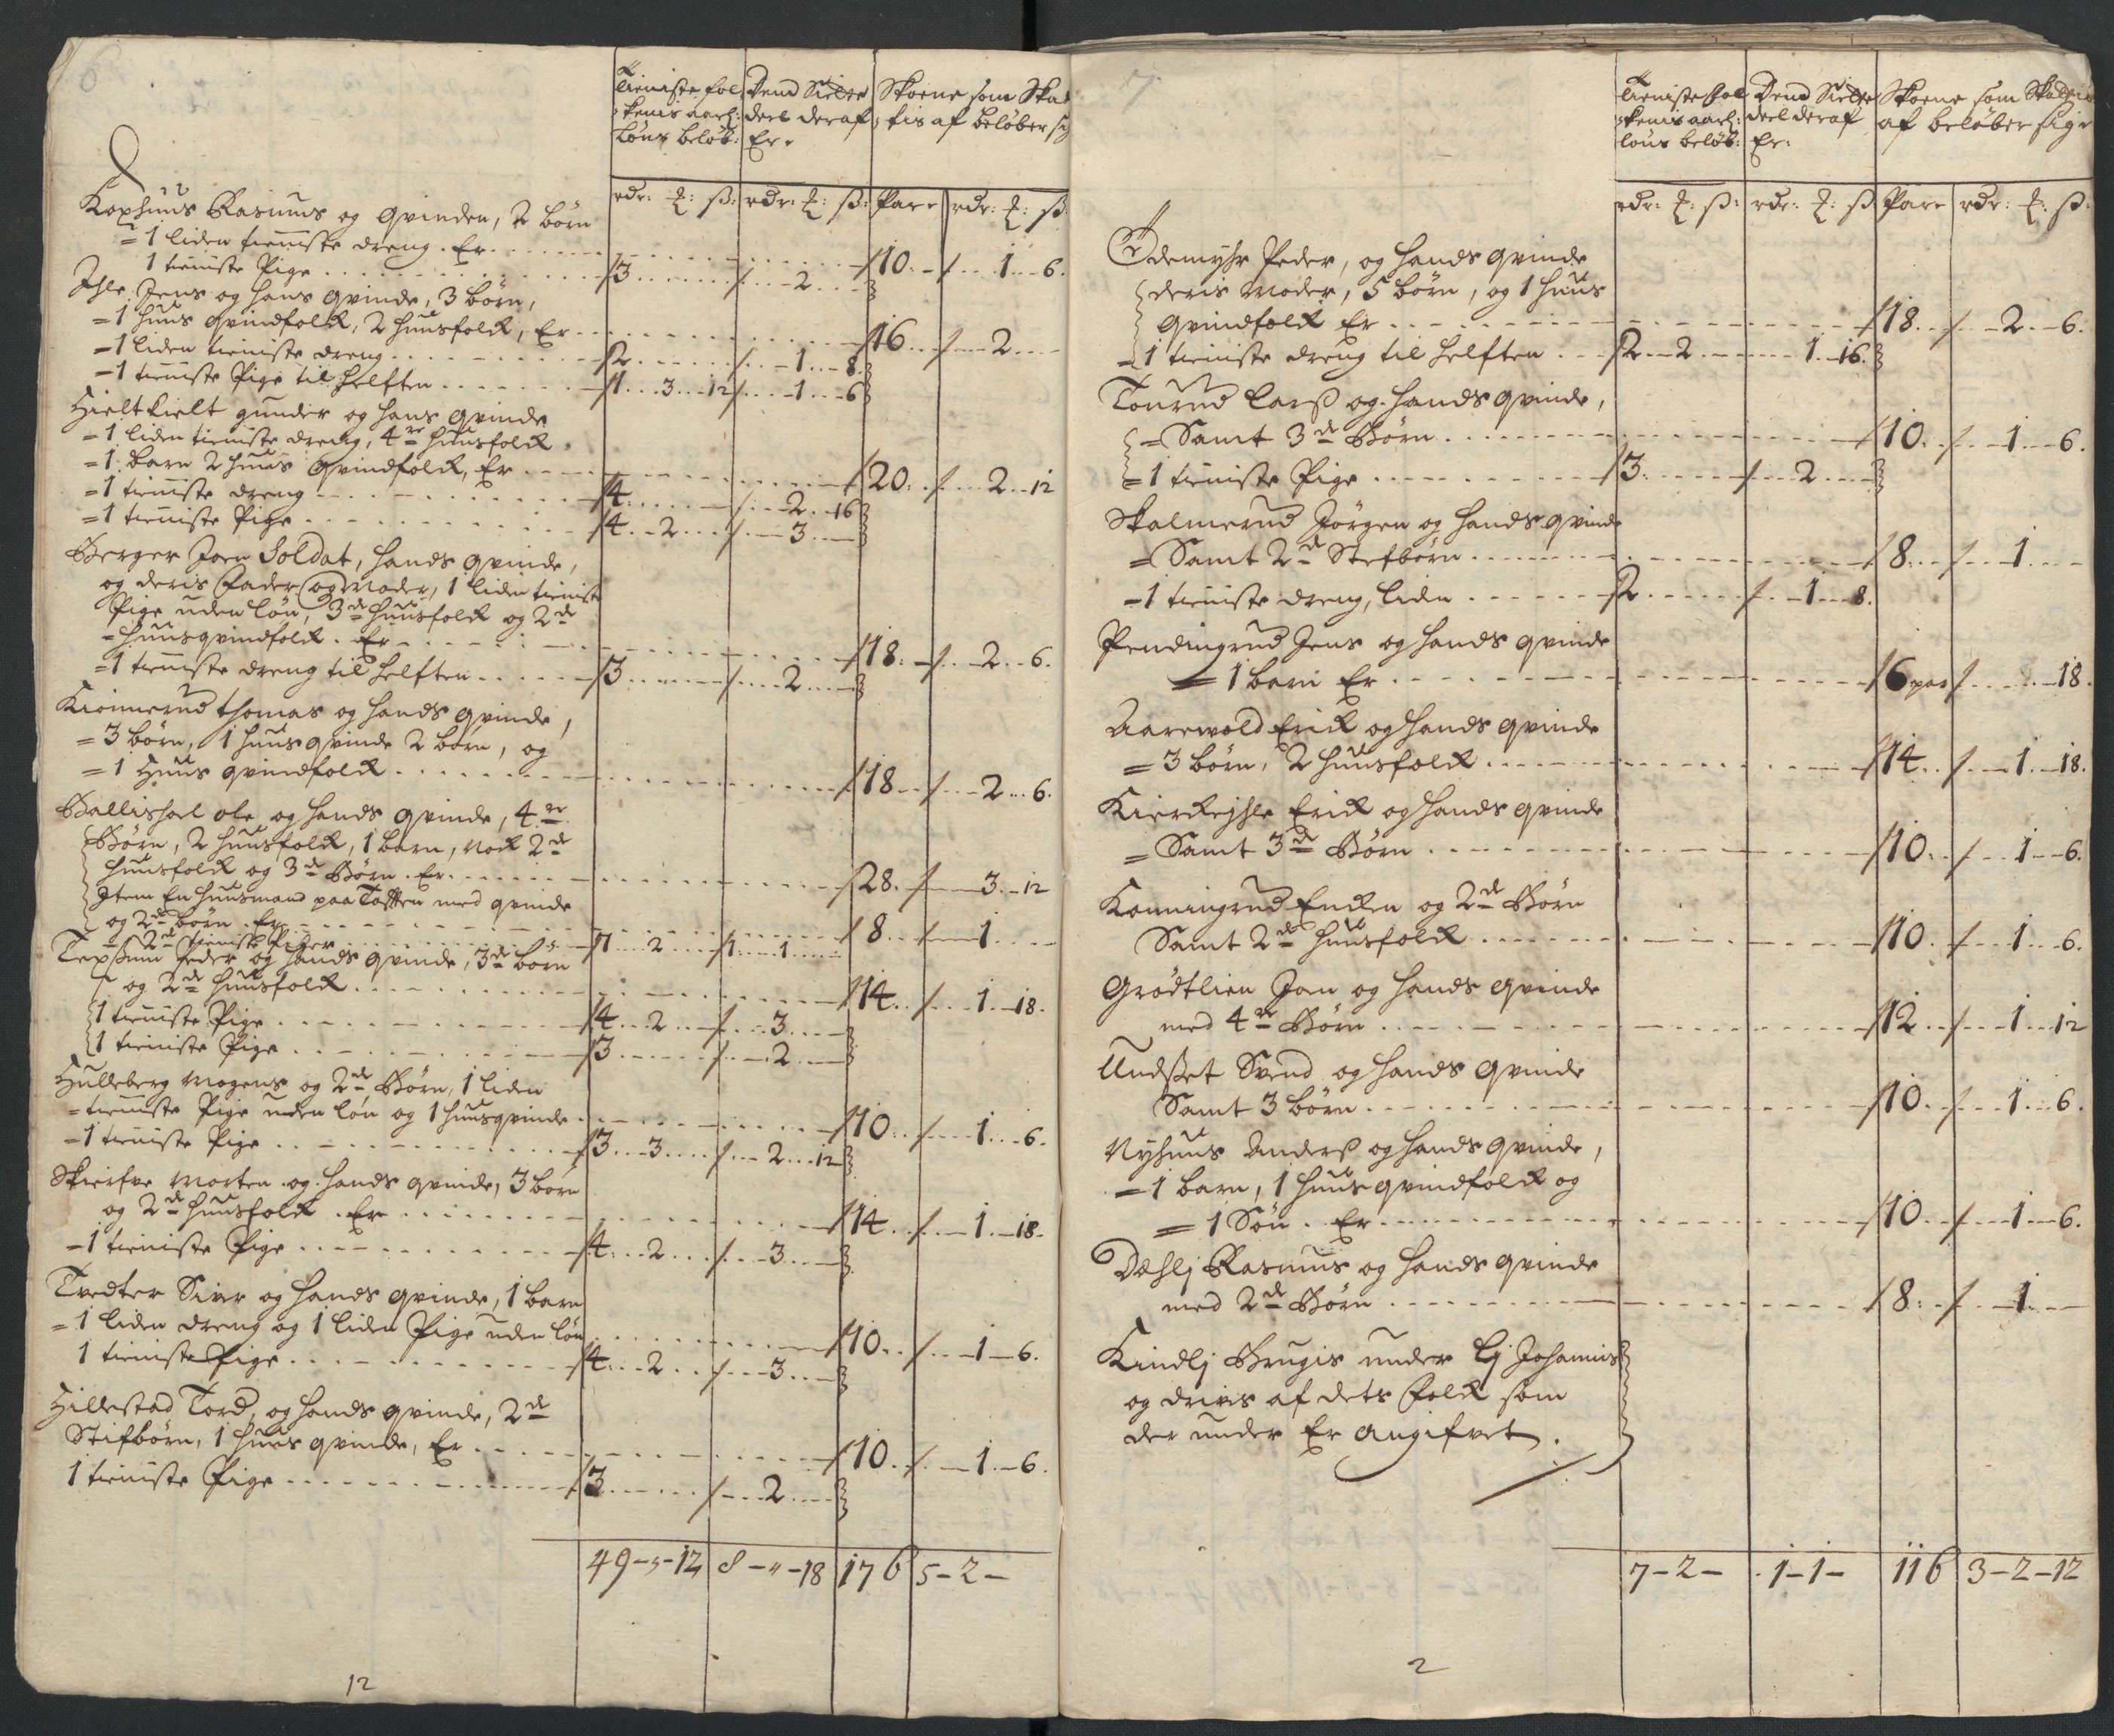 Tieniste fol
kenis aarl:
Løns beløb:
Dend Siette
deel deraf
Er.
Skoene som Skat
tis af beløber sig
rdr: ₰: ß: rdr: ₰: ß: Par rdr: ₰: ß:
Koxhuus Rasmus og Qvinden, 2 børn
= 1 liden tieniste dreng. Er 10 1 6.
1 tieniste Pige 3 2
Ihle Jens og hans Qvinde, 3 børn,
= 1 huus qvindfolk, 2 huusfolk, Er 16 2
= 1 liden tieniste dreng 2 1 8
= 1 tieniste Pige til helften 1 3 12 1 6
gunder og hans Qvinde
= 1 liden tieniste dreng, 4re huusfolk
= 1 barn 2 huus Qvindfolk, Er 20 2 12
= 1 tieniste dreng 4 2 16
= 1 tieniste Pige 4 2 3
Berger Joen Soldat, hands Qvinde,
og deris Fader og Moder, 1 liden tieniste
Pige uden løn, 3de huusfolk og 2de
= huusqvindfolk. Er 18 2 6.
= 1 tieniste dreng til helften 3 2
Kionnerud Thomas og hands Qvinde,
= 3 børn, 1 huus qvinde 2 børn, og
= 1 Huus qvindfolk 18 2 6.
Ballishoel ole og hands Qvinde, 4re
Børn, 2 huusfolk, 1 barn, nok 2de
huusfolk og 3de Børn. Er 28 3 12
Item En huusmand paa Toften med qvinde
og 2de børn. Er 8 1
= 2de tieniste Piger 7 2 1 1
Peder og hands Qvinde, 3de børn
og 2de huusfolk 14 1 18.
1 tieniste Pige 4 2 3
1 tieniste Pige 3 2
Hulleberg Mogens og 2de Børn, 1 liden
= tieniste Pige uden løn og 1 huusqvinde 10 1 6.
= 1 tieniste Pige 3 3 2 12
Skierfve Morten og hands Qvinde, 3 børn
og 2de huusfolk. Er 14 1 18.
= 1 tieniste Pige 4 2 3
Tvedter Siver og hands Qvinde, 1 barn
= 1 liden dreng og 1 liden Pige uden løn 10 1 6.
1 tieniste Pige 4 2 3
Hillestad Tord, og hands Qvinde, 2de
Stifbørn, 1 huus qvinde, Er 10 1 6.
1 tieniste Pige 3 2
49-5-12 8-"-18 176 5-2-
12
Tieniste fol
kenis aarl:
løns beløb:
Dend Siette
deel deraf
Er:
Skoene som Skattis
af beløber sig
rdr: ₰: ß: rdr: ₰: ß Par rdr: ₰: ß:
Ødemyhr Peder, og hands Qvinde
deris moder, 5 børn, og 1 huus
Qvindfolk Er 18 2 6.
1 tieniste dreng til helften 2 2 1 16.
Tourud Larß og hands Qvinde,
= Samt 3de Børn 10 1 6.
= 1 tieniste Pige 3 2
Skalmerud Jörgen og hands Qvinde
= Samt 2de Stefbørn 8 1
= 1 tieniste dreng, liden 2 1 8.
Pendingrud Jens og hands Qvinde
= 1 barn Er 6 par 18.
Aarewold Erick og hands Qvinde
= 3 børn, 2 huusfolk 14 1 18.
Erick og hands Qvinde
= Samt 3de Børn 10 1 6.
Konningrud Encken og 2de Børn
Samt 2de huusfolk 10 1 6.
Grødtlien Joen og hands Qvinde
med 4re Børn 12 1 12
Undset Svend og hands Qvinde
Samt 3 børn 10 1 6.
Nyhuus Anderß og hands Qvinde,
= 1 barn, 1 huus qvindfolk og
= 1 Søn. Er 10 1 6.
Dæhlj Rasmus og hands Qvinde
med 2de Børn 8 1
Kindlj Brugis under Lj Johannis
og drives af dets folk som
der under Er angifvet.
7-2- 1-1- 116 3-2-12
2